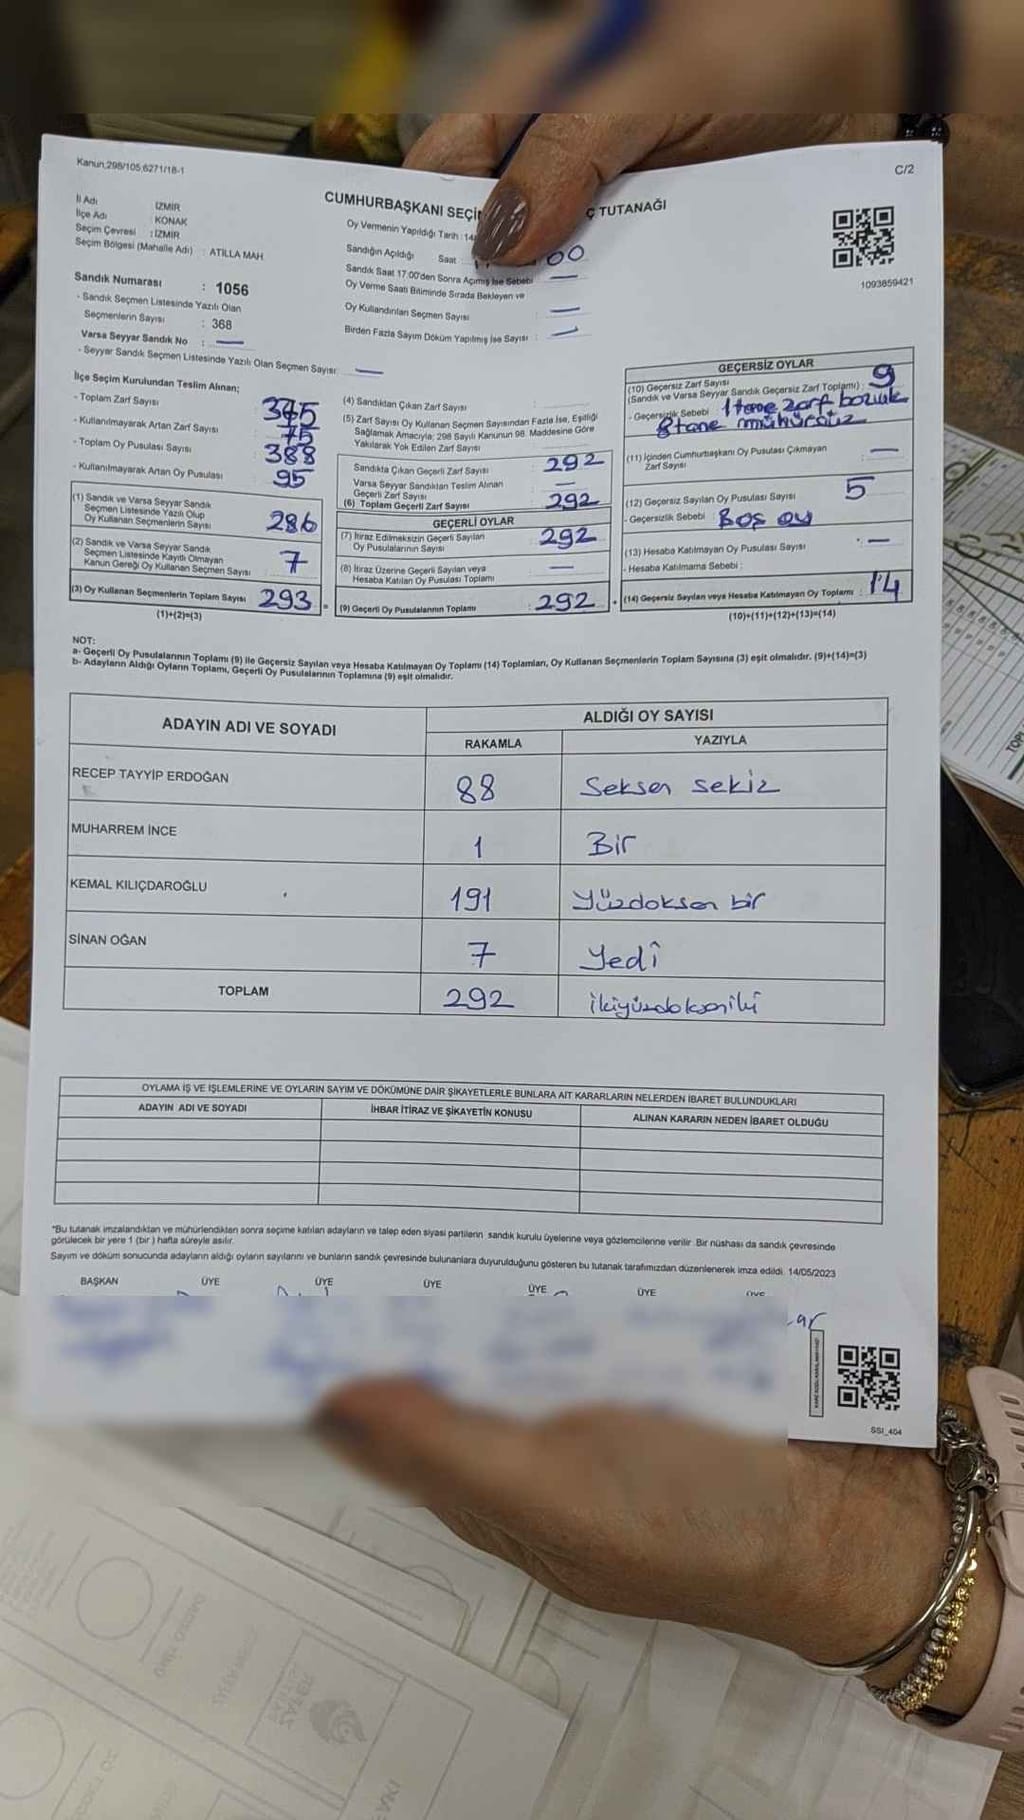 Kanun,298/105,6271/18-1
C/2
İl Adı İZMİR
İlçe Adı : KONAK
Seçim Çevresi : İZMİR
Seçim Bölgesi (Mahalle Adı) : ATİLLA MAH.
CUMHURBAŞKANI SEÇİ Ç TUTANAĞI
Oy Vermenin Yapıldığı Tarih :14
Sandığın Açıldığı Saat : 00
Sandık Saat 17:00'den Sonra Açımış İse Sebebi —
Oy Verme Saati Bitiminde Sırada Bekleyen ve
Oy Kullandırılan Seçmen Sayısı : —
Birden Fazla Sayım Döküm Yapılmış İse Sayısı : —
1093859421
Sandık Numarası : 1056
- Sandık Seçmen Listesinde Yazılı Olan
Seçmenlerin Sayısı : 368
Varsa Seyyar Sandık No : —
- Seyyar Sandık Seçmen Listesinde Yazılı Olan Seçmen Sayısı: —
İlçe Seçim Kurulundan Teslim Alınan;
- Toplam Zarf Sayısı
- Kullanılmayarak Artan Zarf Sayısı : 75
- Toplam Oy Pusulası Sayısı : 388
- Kullanılmayarak Artan Oy Pusulası : 95
(1) Sandık ve Varsa Seyyar Sandık
Seçmen Listesinde Yazılı Olup
Oy Kullanan Seçmenlerin Sayısı 286
(2) Sandık ve Varsa Seyyar Sandık
Seçmen Listesinde Kayıtlı Olmayan
Kanun Gereği Oy Kullanan Seçmen Sayısı 7
(3) Oy Kullanan Seçmenlerin Toplam Sayısı 293
(1)+(2)=(3)
(4) Sandıktan Çıkan Zarf Sayısı
(5) Zarf Sayısı Oy Kullanan Seçmen Sayısından Fazla İse, Eşitliği
Sağlamak Amacıyla; 298 Sayılı Kanunun 98. Maddesine Göre
Yakılarak Yok Edilen Zarf Sayısı
Sandıkta Çıkan Geçerli Zarf Sayısı 292
Varsa Seyyar Sandıktan Teslim Alınan
Geçerli Zarf Sayısı —
(6) Toplam Geçerli Zarf Sayısı 292
GEÇERLİ OYLAR
(7) İtiraz Edilmeksizin Geçerli Sayılan
Oy Pusulalarının Sayısı 292
(8) İtiraz Üzerine Geçerli Sayılan veya
Hesaba Katılan Oy Pusulası Toplamı —
(9) Geçerli Oy Pusulalarının Toplamı : 292
GEÇERSİZ OYLAR
(10) Geçersiz Zarf Sayısı
(Sandık ve Varsa Seyyar Sandık Geçersiz Zarf Toplamı) : 9
- Geçersizlik Sebebi 1 tane zarf bozuk
8 tane mühürsüz
(11) İçinden Cumhurbaşkanı Oy Pusulası Çıkmayan
Zarf Sayısı —
(12) Geçersiz Sayılan Oy Pusulası Sayısı 5
- Geçersizlik Sebebi Boş oy
(13) Hesaba Katılmayan Oy Pusulası Sayısı : —
- Hesaba Katılmama Sebebi :
(14) Geçersiz Sayılan veya Hesaba Katılmayan Oy Toplamı : 14
(10)+(11)+(12)+(13)=(14)
NOT:
a- Geçerli Oy Pusulalarının Toplamı (9) ile Geçersiz Sayılan veya Hesaba Katılmayan Oy Toplamı (14) Toplamları, Oy Kullanan Seçmenlerin Toplam Sayısına (3) eşit olmalıdır. (9)+(14)=(3)
b- Adayların Aldığı Oyların Toplamı, Geçerli Oy Pusulalarının Toplamına (9) eşit olmalıdır.
ADAYIN ADI VE SOYADI ALDIĞI OY SAYISI
RAKAMLA YAZIYLA
RECEP TAYYİP ERDOĞAN 88 Seksen sekiz
MUHARREM İNCE 1 Bir
KEMAL KILIÇDAROĞLU 191 Yüzdoksan bir
SİNAN OĞAN 7 Yedi
TOPLAM 292 ikiyüzdoksaniki
OYLAMA İŞ VE İŞLEMLERİNE VE OYLARIN SAYIM VE DÖKÜMÜNE DAİR ŞİKAYETLERLE BUNLARA AİT KARARLARIN NELERDEN İBARET BULUNDUKLARI
ADAYIN ADI VE SOYADI İHBAR İTİRAZ VE ŞİKAYETİN KONUSU ALINAN KARARIN NEDEN İBARET OLDUĞU
*Bu tutanak imzalandıktan ve mühürlendikten sonra seçime katılan adayların ve talep eden siyasi partilerin sandık kurulu üyelerine veya gözlemcilerine verilir. Bir nüshası da sandık çevresinde
görülecek bir yere 1 (bir) hafta süreyle asılır.
Sayım ve döküm sonucunda adayların aldığı oyların sayılarını ve bunların sandık çevresinde bulunanlara duyurulduğunu gösteren bu tutanak tarafımızdan düzenlenerek imza edildi. 14/05/2023
BAŞKAN ÜYE ÜYE ÜYE ÜYE ÜYE ÜYE
SSI_404